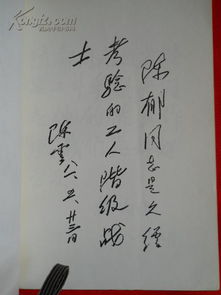 陈郁同志是久经
考验的工人阶级战
士
陈云 八六、五、廿三日
孔夫子旧书网